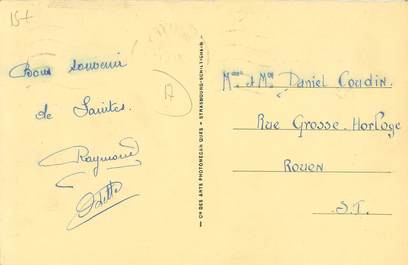 15-
Bons souvenir
de Saintes.
Raymond
Odette
17
Cie DES ARTS PHOTOMÉCANIQUES - STRASBOURG-SCHILTIGHEIM
Mme & Mr Daniel Coudin.
Rue Grosse-Horloge
Rouen
S.I.